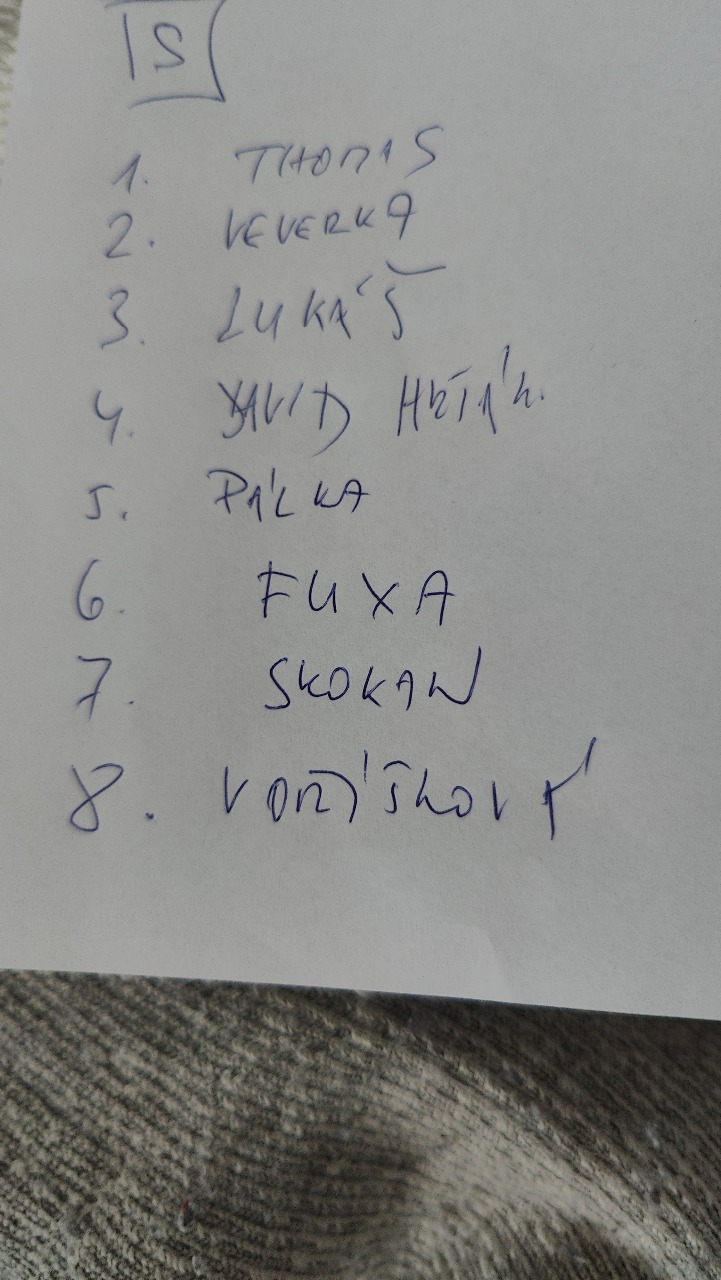 S
1. THOMAS
2. VEVERKA
3. LUKÁŠ
4. DAVID
5. PÁLKA
6. FUXA
7. SKOKAN
8. VOŘÍŠKOVÁ